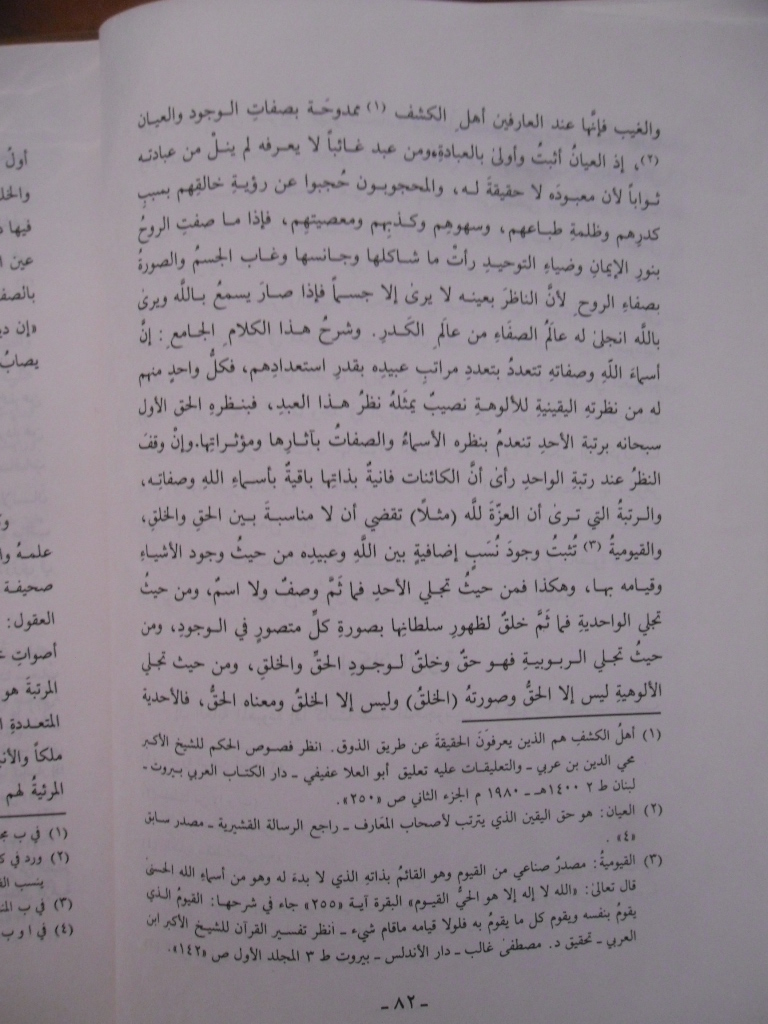 والغيب فإنَّها عند العارفين أهلِ الكشف (١) ممدوحَة بصفاتِ الوجود والعيان
(٢)، إذ العيانُ أثبتُ وأولى بالعبادةِ،ومن عبد غائباً لا يعرفه لم ينلْ من عبادته
ثواباً لأن معبودَه لا حقيقةَ له، والمحجوبون حُجبوا عن رؤيةِ خالقِهم بسببِ
كدرِهم وظلمةِ طباعهم، وسهوهِم وكذبِهم ومعصيتهِم، فإذا ما صفتِ الروحُ
بنورِ الإيمانِ وضياءِ التوحيدِ رأتْ ما شاكلها وجانسها وغاب الجسمُ والصورةُ
بصفاءِ الروحِ لأنَّ الناظرَ بعينه لا يرىٰ إلا جسماً فإذا صارَ يسمعُ باللَّه ويرىٰ
باللَّه انجلىٰ له عالَمُ الصفَاءِ من عالَمِ الكَدرِ. وشرحُ هذا الكلامِ الجامعِ: إنَّ
أسماءَ اللَّهِ وصفاتهِ تتعددُ بتعددِ مراتبِ عبيدِه بقدرِ استعدادِهم، فكلُّ واحدٍ منهم
له من نظرتهِ اليقينيةِ للألوهةِ نصيبٌ يمثلهُ نظرُ هذا العبدِ، فبنظرهِ الحق الأول
سبحانه برتبة الأحدِ تنعدمُ بنظره الأسماءُ والصفاتُ بآثارِها ومؤثراتِها.وإنْ وقفَ
النظرُ عند رتبةِ الواحدِ رأىٰ أنَّ الكائنات فانيةٌ بذاتِها باقيةٌ بأسماءِ اللهِ وصفاتِه،
والرتبةُ التي ترىٰ أن العزّةَ للَّه (مثلًا) تقضي أن لا مناسبةَ بين الحقِ والخلقِ،
والقيوميةُ (٣) تُثبتُ وجودَ نُسَبٍ إضافيةٍ بين اللَّهِ وعبيدِه من حيثُ وجود الأشياءِ
وقيامه بها، وهكذا فمن حيثُ تجلي الأحدِ فما ثَمَّ وصفٌ ولا اسمٌ، ومن حيثُ
تجلي الواحديةِ فما ثَمَّ خلقٌ لظهورِ سلطانِها بصورةِ كلِّ متصورٍ في الوجودِ، ومن
حيثُ تجلي الربوبيةِ فهو حقٌ وخلقٌ لوجودِ الحقِّ والخلقِ، ومن حيث تجلي
الألوهيةِ ليس إلا الحقُّ وصورتهُ (الخلقُ) وليس إلا الخلقُ ومعناه الحقُّ، فالأحدية
(١) أهلُ الكشفِ هم الذين يعرفونَ الحقيقةَ عن طريق الذوق. انظر فصوص الحكم للشيخ الأكبر
محي الدين بن عربي ـ والتعليقات عليه تعليق أبو العلا عفيفي ـ دار الكتاب العربي بيروت ـ
لبنان ط ٢ ١٤٠٠هـ ـ ١٩٨٠ م الجزء الثاني ص «٢٥٠».
(٢) العيان: هو حق اليقين الذي يترتب لأصحاب المَعارف ـ راجع الرسالة القشيرية ـ مصدر سابق
«٤».
(٣) القيوميةُ: مصدرٌ صناعي من القيوم وهو القائمُ بذاتهِ الذي لا بدءَ له وهو من أسماءِ الله الحسنىٰ
قال تعالىٰ: «الله لا إله إلا هو الحيُّ القيوم» البقرة آية «٢٥٥» جاء في شرحها: القيومُ الذي
يقومُ بنفسه ويقوم كل ما يقومُ به فلولا قيامه ماقام شيء ـ أنظر تفسير القرآن للشيخ الأكبر ابن
العربي ـ تحقيق د. مصطفىٰ غالب ـ دار الأندلس ـ بيروت ط ٣ المجلد الأول ص «١٤٢».
ـ ٨٢ ـ
أولُ
فيها
عين
«إن
يصابُ
علمهُ
صحيفة
العقول:
أصواتِ
المرتبةَ هو
المتعددةِ
ملكاً
المرئيةُ لهم
(١) في ب
(٢) ورد في
ينسب
(٣) في ب
(٤) في أ و ب